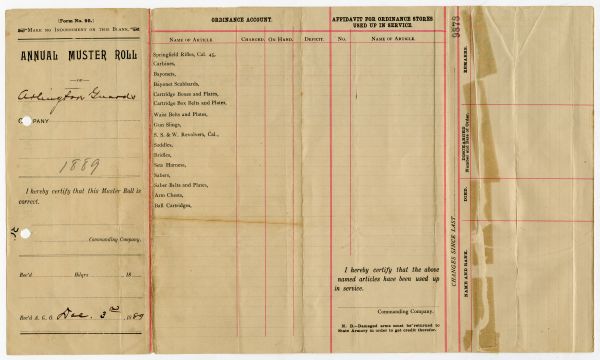 (Form No. 98.)
Make no Indorsement on this Blank.
ANNUAL MUSTER ROLL
—OF—
Arlington Guards
COMPANY
1889
I hereby certify that this Muster Roll is
correct.
Commanding Company.
Rec'd Hdqrs. 18
Rec'd A. G. O. Dec. 3rd 1889
ORDINANCE ACCOUNT.
Name of Article. Charged. On Hand. Deficit.
Springfield Rifles, Cal. 45,
Carbines,
Bayonets,
Bayonet Scabbards,
Cartridge Boxes and Plates,
Cartridge Box Belts and Plates,
Waist Belts and Plates,
Gun Slings,
S. & W. Revolvers, Cal.,
Saddles,
Bridles,
Sets Harness,
Sabers,
Saber Belts and Plates,
Arm Chests,
Ball Cartridges,
AFFIDAVIT FOR ORDINANCE STORES
USED UP IN SERVICE.
No. Name of Article.
I hereby certify that the above
named articles have been used up
in service.
Commanding Company.
N. B.—Damaged arms must be returned to
State Armory in order to get credit therefor.
9879
CHANGES SINCE LAST
NAME AND RANK.
DIED.
DISCHARGED
Number and Date of Order.
REMARKS.